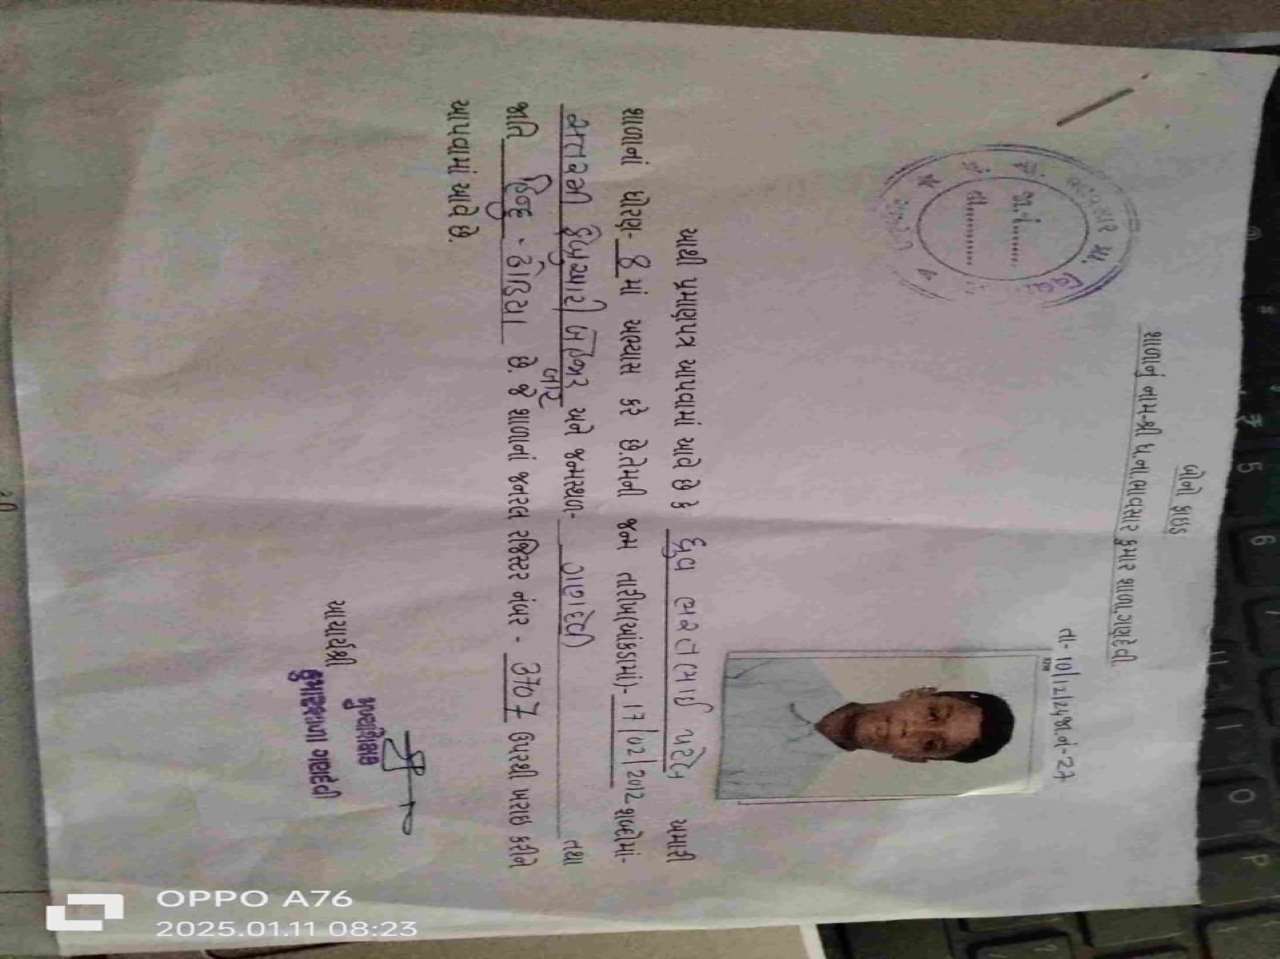 બોનો ફાઇડ
શાળાનું નામ-શ્રી ધ.ના.ભાવસાર કુમાર શાળા,ગણદેવી
તા- 10/12/24 જા.નં- 27
જા.નં..........
તા............
આથી પ્રમાણપત્ર આપવામાં આવે છે કે ધ્રુવ ભરતભાઈ પટેલ અમારી
શાળાનાં ધોરણ- 8 માં અભ્યાસ કરે છે.તેમની જન્મ તારીખ(આંકડામાં)- 17/02/2012 શબ્દોમાં-
સત્તરમી ફેબ્રુઆરી બે હજાર બાર અને જન્મસ્થળ- ગણદેવી તથા
જાતિ હિન્દુ - ઢોડિયા છે. જે શાળાનાં જનરલ રજિસ્ટર નંબર - 3707 ઉપરથી ખરાઇ કરીને
આપવામાં આવે છે.
આચાર્યશ્રી
મુખ્યશિક્ષક
કુમારશાળા ગણદેવી
OPPO A76
2025.01.11 08:23